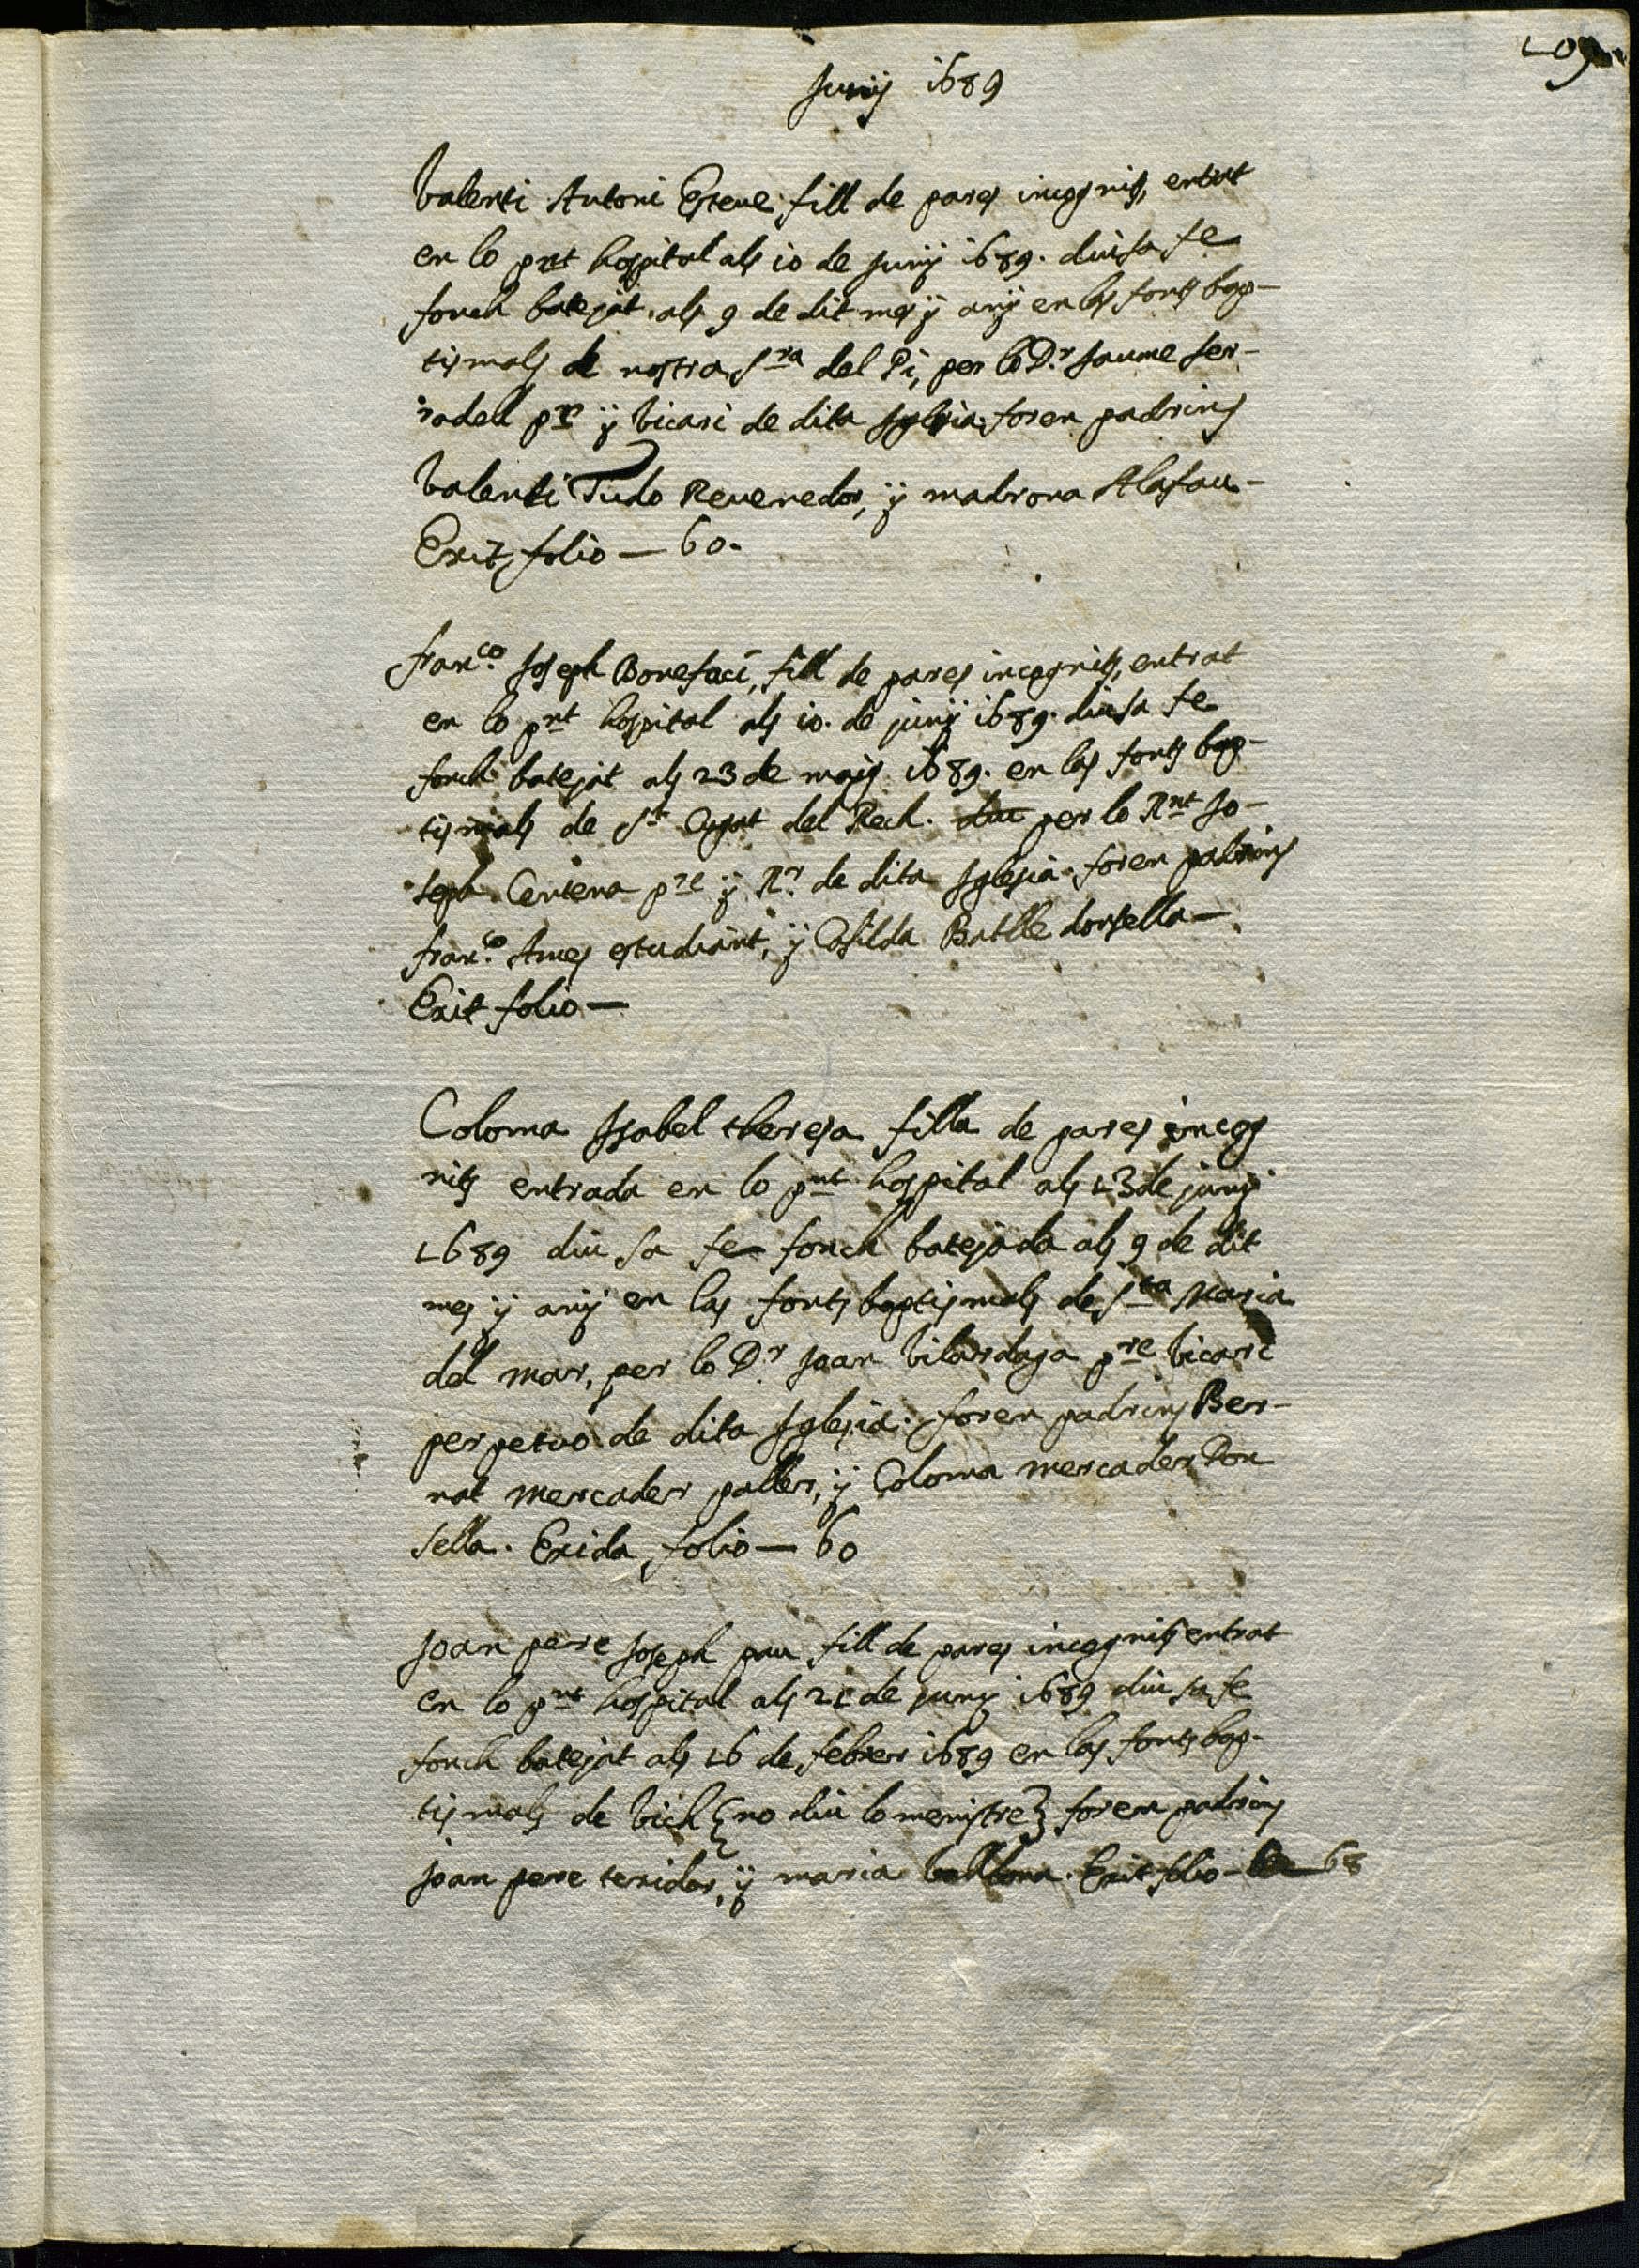 109
Juny 1689
Valenti Antoni Esteue fill de pares incognits, entrat
en lo pnt hospital als 10 de Juny 1689. diu sa fe
fonch batejat als 9 de dit mes y any en las fonts bap-
tismals de nostra Sra del Pi, per lo Dr. Jaume Ser-
radell pre y vicari de dita Iglesia foren padrins
Valenti Tudo Reuenedor, y madrona Alafau-
Exit, folio — 60.
Franco. Joseph Bonefaci, fill de pares incognits, entrat
en lo pnt hospital als 10. de juny 1689. diu sa fe
fonch batejat als 23 de maig 1689. en las fonts bap-
tismals de St Cugat del Rech. per lo Rnt Jo-
seph Centena pre y Rr. de dita Iglesia foren padrins
franco. Ames estudiant, y Casilda Batlle donsella —
Exit folio —
Coloma Isabel theresa filla de pares incog
nits entrada en lo pnt hospital als 13 de juny
1689 diu sa fe fonch batejada als 9 de dit
mes y any en las fonts baptismals de Sta Maria
del mar, per lo Dr. Joan Vilardaga pre vicari
perpetuo de dita Iglesia. foren padrins Ber-
nat mercader paller, y Coloma mercader Don
sella. Exida, folio — 60
Joan pere Joseph pau fill de pares incognits entrat
en lo pnt hospital als 21 de juny 1689 diu sa fe
fonch batejat als 16 de febrer 1689 en las fonts bap-
tismals de Vich (no diu lo menistre) foren padrins
joan pere texidor, y maria Exit folio — 68